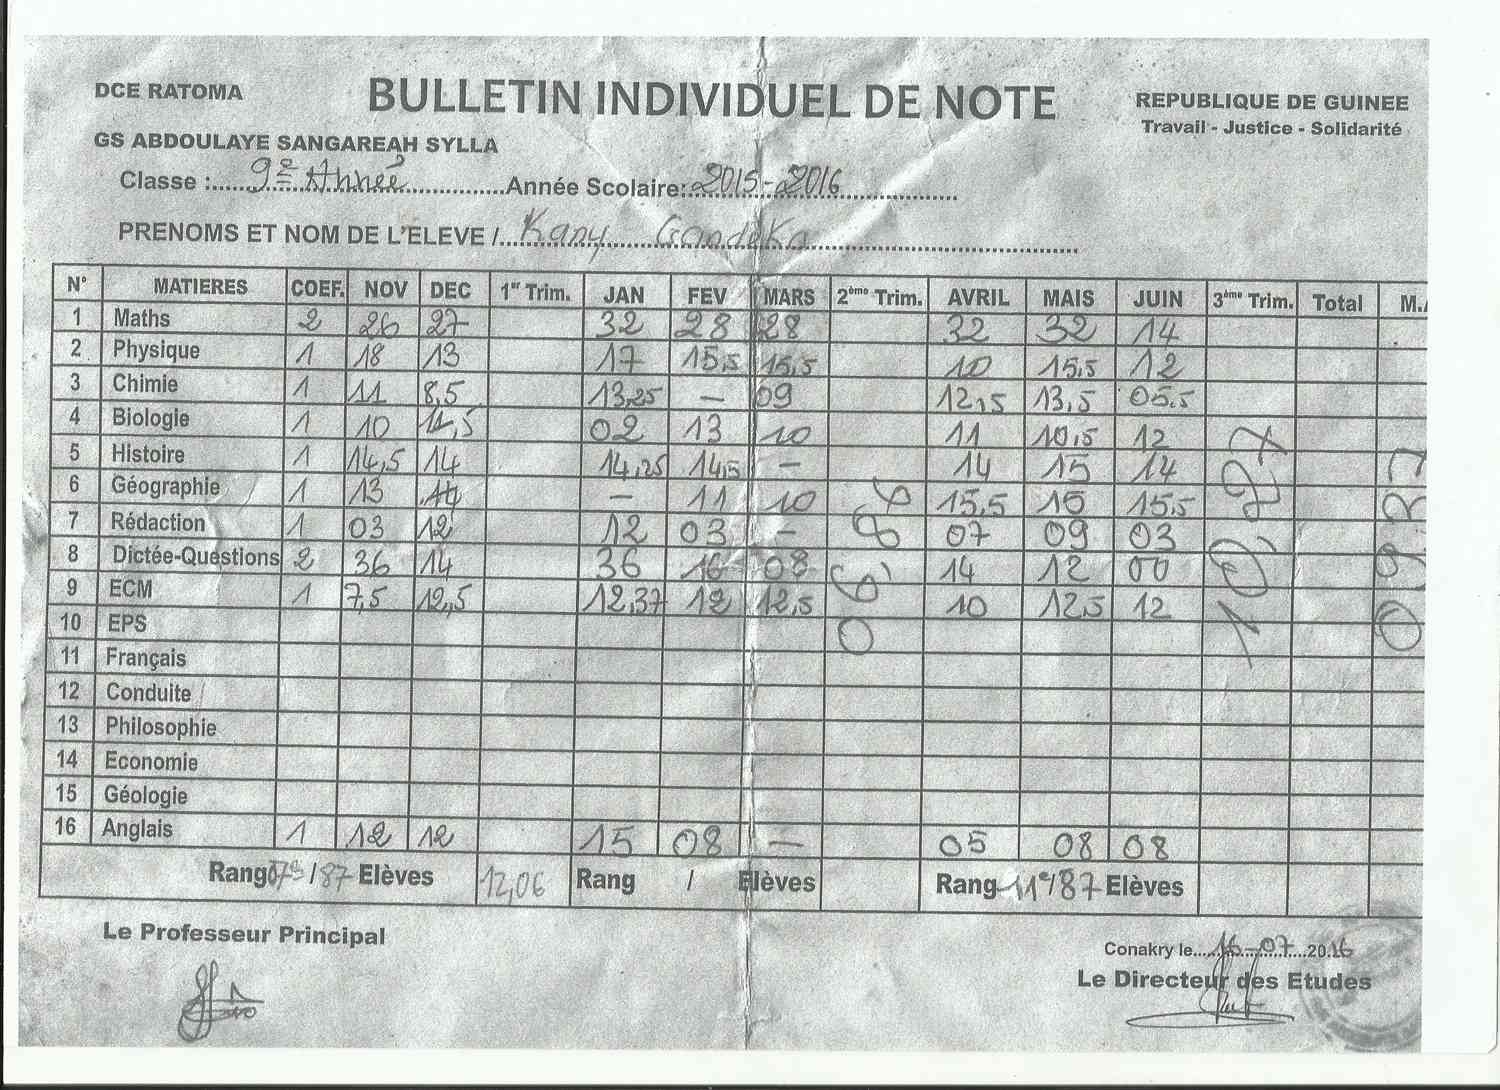 DCE RATOMA
BULLETIN INDIVIDUEL DE NOTE
REPUBLIQUE DE GUINEE
Travail - Justice - Solidarité
GS ABDOULAYE SANGAREAH SYLLA
Classe :.....9e Année..................Année Scolaire:2015-2016..................
PRENOMS ET NOM DE L'ELEVE /...Kany Gandéka...........................
N° MATIERES COEF. NOV DEC 1er Trim. JAN FEV MARS 2ème Trim. AVRIL MAIS JUIN 3ème Trim. Total M.
1 Maths 2 26 27 32 28 28 32 32 14
2 Physique 1 18 13 17 15,5 15,5 10 15,5 12
3 Chimie 1 11 8,5 13,25 – 09 12,5 13,5 05.5
4 Biologie 1 10 11,5 02 13 10 11 10,5 12
5 Histoire 1 14,5 14 14,25 14,5 – 14 15 14
6 Géographie 1 13 14 – 11 10 15,5 10 15,5
7 Rédaction 1 03 12 12 03 – 07 09 03
8 Dictée-Questions 2 36 14 36 16 08 14 12 00
9 ECM 1 7,5 12,5 12,37 12 12,5 10 12,5 12
10 EPS
11 Français
12 Conduite
13 Philosophie
14 Economie
15 Géologie
16 Anglais 1 12 12 15 08 – 05 08 08
06,86
10,27
Rang 07e /87 Elèves 12,06 Rang / Elèves Rang 11e/87 Elèves
Le Professeur Principal
Conakry le....16-07....2016
Le Directeur des Etudes